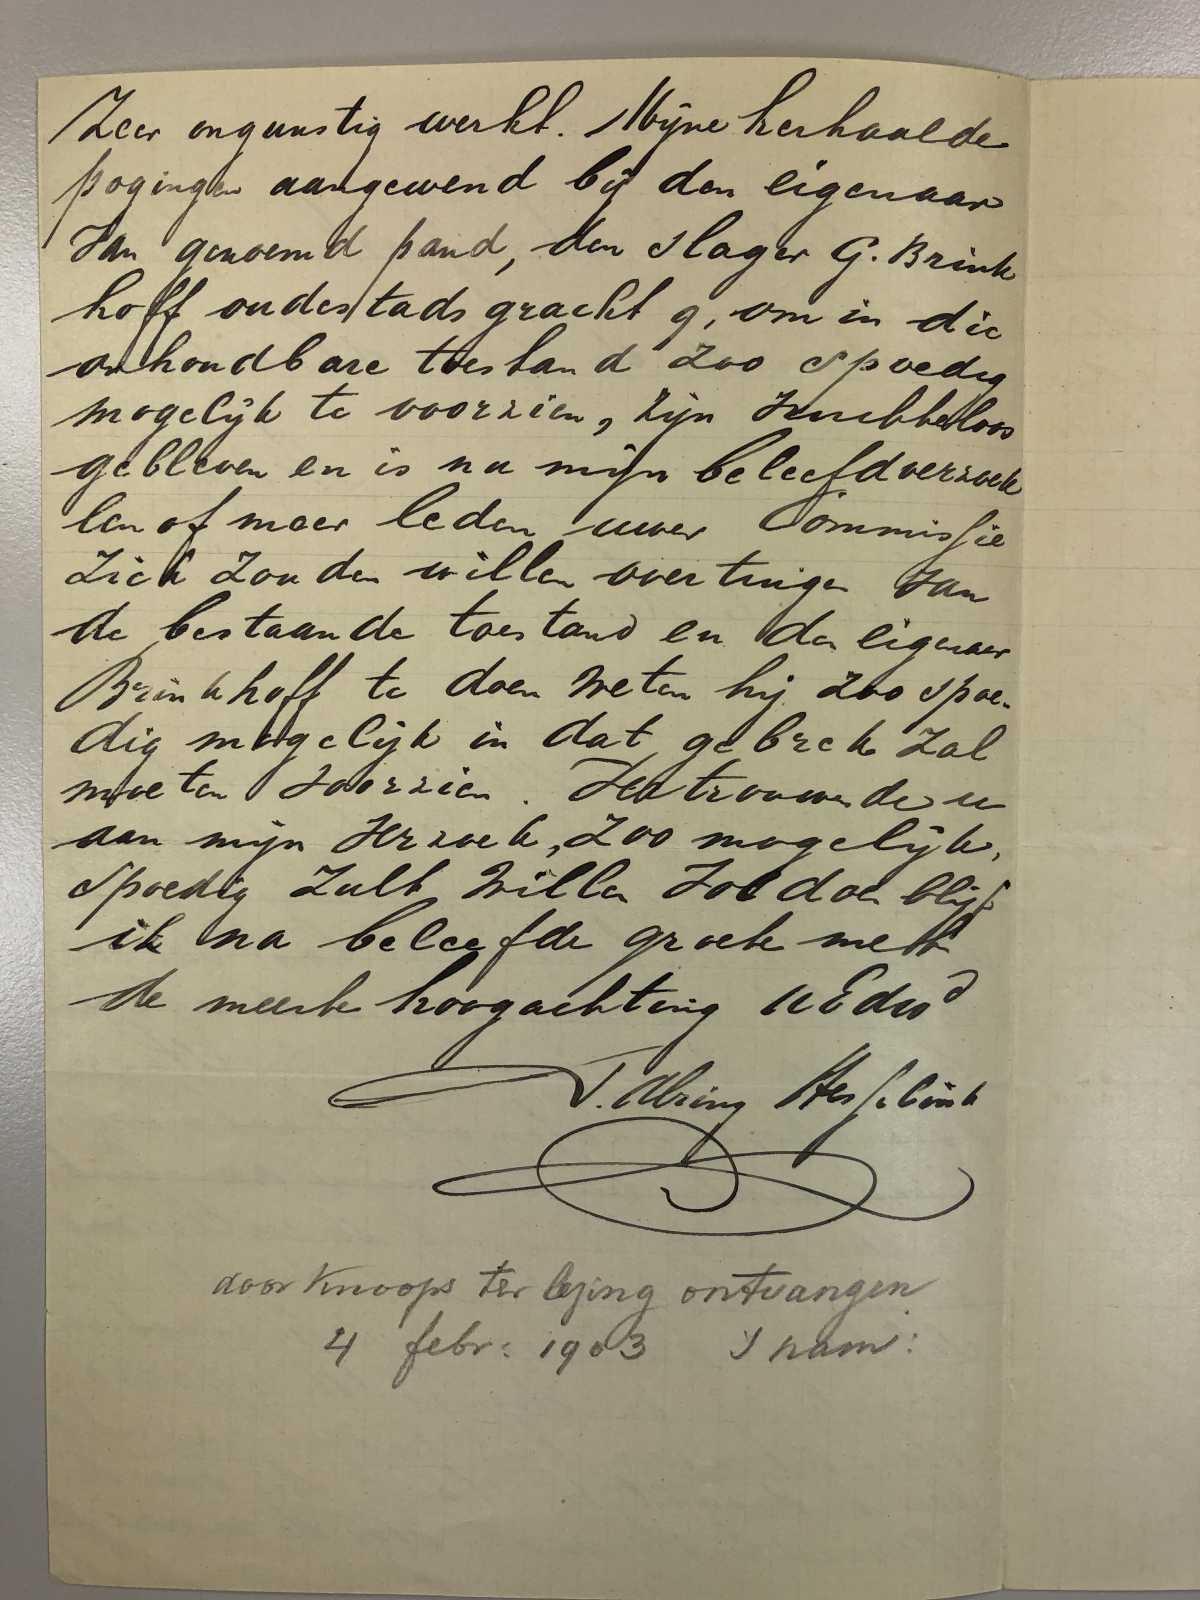 Zeer ongunstig werkt. Mijne herhaalde
pogingen aangewend bij den eigenaar
van genoemd pand, den slager G. Brink
hoff oudestadsgracht 9, om in die
onhoudbare toestand zoo spoedig
mogelijk te voorzien, zijn vruchteloos
gebleven en is nu mijn beleefd verzoek
een of meer leden uwer Commissie
zich zouden willen overtuigen van
de bestaande toestand en den eigenaar
Brinkhoff te doen weten hij zoo spoe-
dig mogelijk in dat gebrek zal
moeten voorzien. Vertrouwende u
aan mijn verzoek, zoo mogelijk,
spoedig zult willen voldoen blijf
ik na beleefde groete met
de meeste hoogachting UEdw
door Knoops ter lezing ontvangen
4 febr: 1903 's nam: